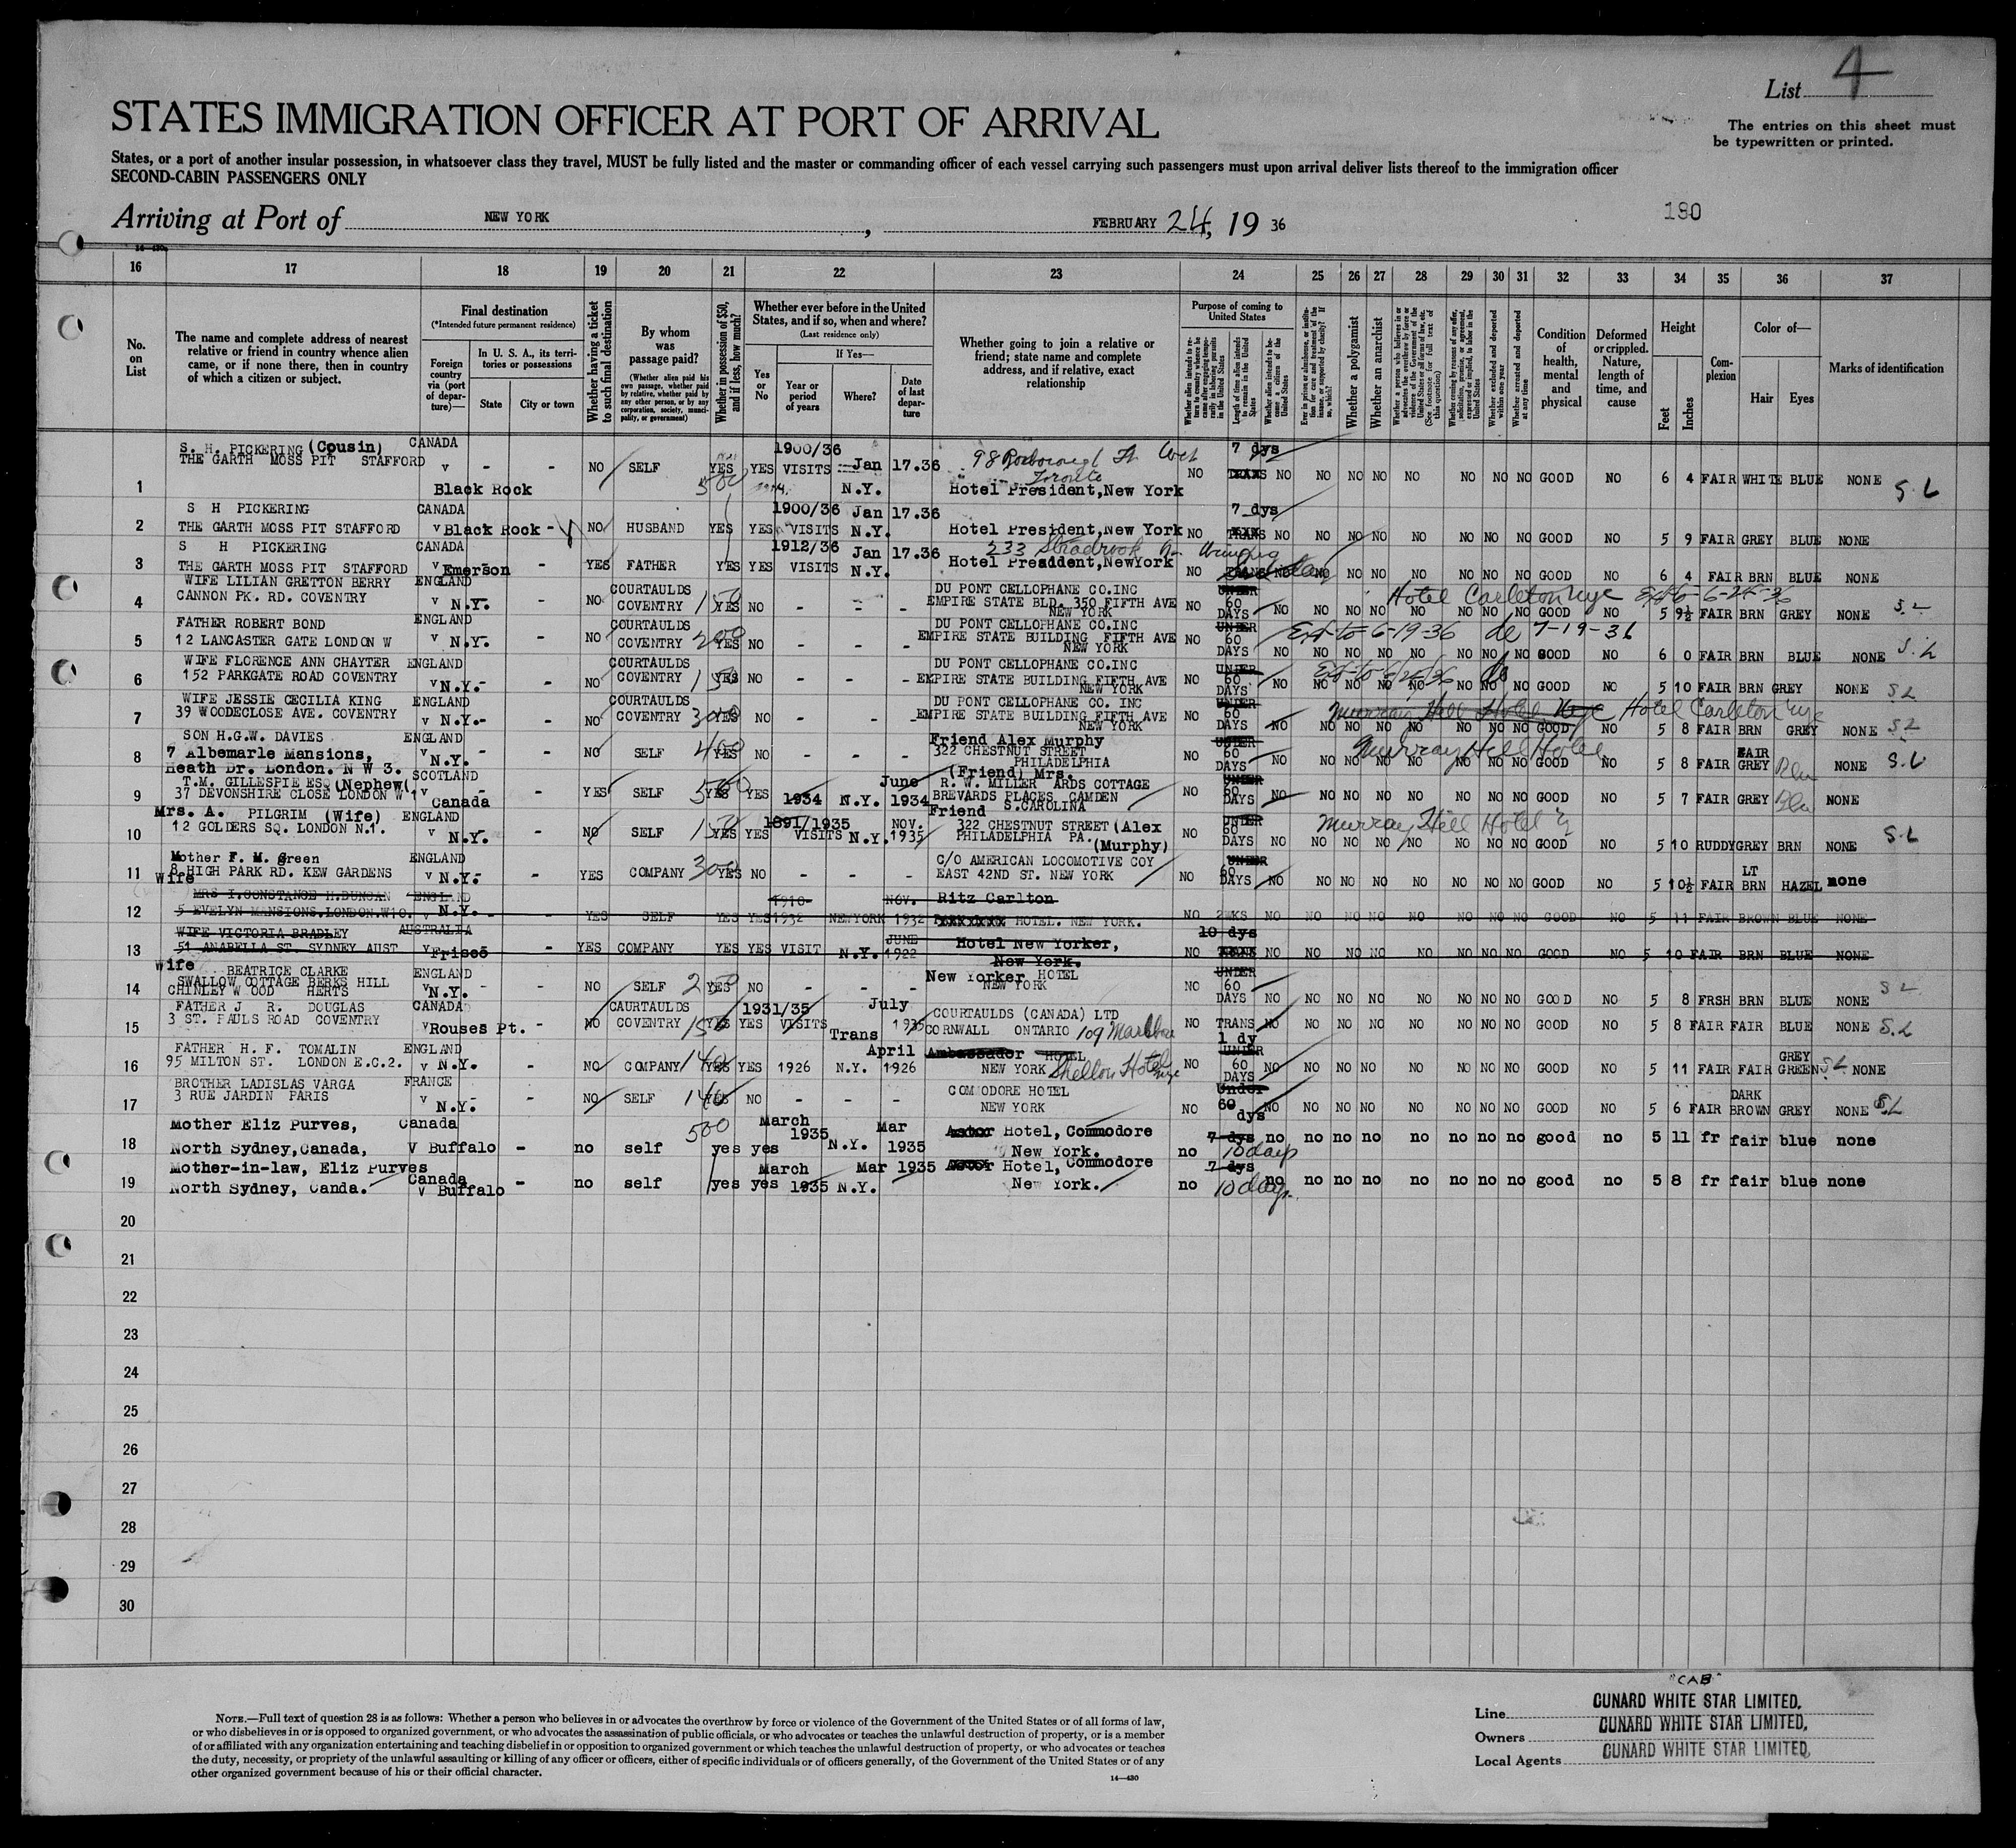 List 4
STATES IMMIGRATION OFFICER AT PORT OF ARRIVAL
The entries on this sheet must
be typewritten or printed.
States, or a port of another insular possession, in whatsoever class they travel, MUST be fully listed and the master or commanding officer of each vessel carrying such passengers must upon arrival deliver lists thereof to the immigration officer
SECOND-CABIN PASSENGERS ONLY
Arriving at Port of NEW YORK, FEBRUARY 24, 19 36
180
16 17 18 19 20 21 22 23 24 25 26 27 28 29 30 31 32 33 34 35 36 37
No. on List
The name and complete address of nearest
relative or friend in country whence alien
came, or if none there, then in country
of which a citizen or subject.
Final destination
(*Intended future permanent residence)
Foreign country via (port of departure)—
In U. S. A., its territories or possessions
State
City or town
Whether having a ticket to such final destination
By whom was passage paid?
(Whether alien paid his own passage, whether paid by relative, whether paid by any other person, or by any corporation, society, municipality, or government)
Whether in possession of $50, and if less, how much?
Whether ever before in the United States, and if so, when and where?
(Last residence only)
Yes or No
If Yes—
Year or period of years
Where?
Date of last departure
Whether going to join a relative or
friend; state name and complete
address, and if relative, exact
relationship
Purpose of coming to United States
Whether a polygamist
Whether an anarchist
Condition of health, mental and physical
Deformed or crippled. Nature, length of time, and cause
Height
Feet
Inches
Complexion
Color of—
Hair
Eyes
Marks of identification
1 S. H. PICKERING (Cousin) CANADA 1900/36 98 7 dys
THE GARTH MOSS PIT STAFFORD v - - NO SELF YES YES VISITS Jan 17.36 Toronto NO TRANS NO NO NO NO NO NO NO NO GOOD NO 6 4 FAIR WHITE BLUE NONE S.L
Black Rock 500 N.Y. Hotel President, New York
2 S H PICKERING CANADA 1900/36 Jan 17.36 7 dys
THE GARTH MOSS PIT STAFFORD v Black Rock - NO HUSBAND YES YES VISITS N.Y. Hotel President, New York NO TRANS NO NO NO NO NO NO NO NO GOOD NO 5 9 FAIR GREY BLUE NONE
3 S H PICKERING CANADA 1912/36 Jan 17.36 233
THE GARTH MOSS PIT STAFFORD v Emerson - YES FATHER YES YES VISITS N.Y. Hotel Preaddent, NewYork NO NO NO NO NO NO NO NO NO GOOD NO 6 4 FAIR BRN BLUE NONE
4 WIFE LILIAN GRETTON BERRY ENGLAND COURTAULDS DU PONT CELLOPHANE CO.INC UNDER Hotel Carleton nyc Ext to 6-25-36
CANNON PK. RD. COVENTRY v N.Y. - NO COVENTRY 150 YES NO - - - EMPIRE STATE BLD. 350 FIFTH AVE NEW YORK NO 60 DAYS NO NO NO NO NO NO NO NO GOOD NO 5 9½ FAIR BRN GREY NONE S.L
5 FATHER ROBERT BOND ENGLAND COURTAULDS DU PONT CELLOPHANE CO.INC UNDER Ext to 6-19-36 de 7-19-36
12 LANCASTER GATE LONDON W v N.Y. - NO COVENTRY 200 YES NO - - - EMPIRE STATE BUILDING FIFTH AVE NEW YORK NO 60 DAYS NO NO NO NO NO NO NO NO GOOD NO 6 0 FAIR BRN BLUE NONE S.L
6 WIFE FLORENCE ANN CHAYTER ENGLAND COURTAULDS DU PONT CELLOPHANE CO.INC UNDER
152 PARKGATE ROAD COVENTRY v N.Y. - - NO COVENTRY 150 YES NO - - - EMPIRE STATE BUILDING FIFTH AVE NEW YORK NO 60 DAYS NO NO NO NO NO NO NO NO GOOD NO 5 10 FAIR BRN GREY NONE S L
7 WIFE JESSIE CECILIA KING ENGLAND COURTAULDS DU PONT CELLOPHANE CO. INC UNDER Murray Hill Hotel nyc Hotel Carleton nyc
39 WOODECLOSE AVE. COVENTRY v N.Y. - - NO COVENTRY 300 YES NO - - - EMPIRE STATE BUILDING FIFTH AVE NEW YORK NO 60 DAYS NO NO NO NO NO NO NO NO GOOD NO 5 8 FAIR BRN GREY NONE S L
8 SON H.G.W. DAVIES ENGLAND Friend Alex Murphy UNDER Murray Hill Hotel
7 Albemarle Mansions, v N.Y. - - NO SELF 400 YES NO - - - 322 CHESTNUT STREET PHILADELPHIA NO 60 DAYS NO NO NO NO NO NO NO NO GOOD NO 5 8 FAIR FAIR GREY Blu NONE S.L
Heath Dr. London. N W 3.
9 T.M. GILLESPIE ESQ (Nephew( SCOTLAND June (Friend) Mrs. UNDER
37 DEVONSHIRE CLOSE LONDON W 1 v Canada - - YES SELF 500 YES YES 1934 N.Y. 1934 R. W. MILLER ARDS COTTAGE BREVARDS PLACES CAMDEN S.CAROLINA NO 60 DAYS NO NO NO NO NO NO NO NO GOOD NO 5 7 FAIR GREY Blu NONE
10 Mrs. A. PILGRIM (Wife) ENGLAND 1891/1935 NOV. Friend UNDER Murray Hill Hotel
12 GOLDERS SQ. LONDON N.1. v N.Y. - - NO SELF YES YES VISITS N.Y. 1935 322 CHESTNUT STREET (Alex PHILADELPHIA PA. (Murphy) NO 60 DAYS NO NO NO NO NO NO NO NO GOOD NO 5 10 RUDDY GREY BRN NONE S.L
11 Mother F. M. Green ENGLAND C/O AMERICAN LOCOMOTIVE COY UNDER LT
8 HIGH PARK RD. KEW GARDENS v N.Y. - - YES COMPANY 300 YES NO - - - EAST 42ND ST. NEW YORK NO 60 DAYS NO NO NO NO NO NO NO NO GOOD NO 5 10½ FAIR BRN HAZEL none
12 Wife MRS I.CONSTANCE H.DUNCAN ENGLAND 1910- NOV. Ritz Carlton
5 EVELYN MANSIONS.LONDON.W10. v N.Y. - - YES SELF YES YES 1932 NEWYORK 1932 HOTEL. NEW YORK. NO 2 WKS NO NO NO NO NO NO NO NO GOOD NO 5 11 FAIR BROWN BLUE NONE
13 WIFE VICTORIA BRADLEY AUSTRALIA JUNE Hotel New Yorker, 10 dys
51 ANABELLA ST. SYDNEY AUST v Frisco - YES COMPANY YES YES VISIT N.Y. 1922 New York. NO TRANS NO NO NO NO NO NO NO NO GOOD NO 5 10 FAIR BRN BLUE NONE
14 Wife BEATRICE CLARKE ENGLAND New Yorker HOTEL UNDER
SWALLOW COTTAGE BERKS HILL v N.Y. - - NO SELF 250 YES NO - - - NEW YORK NO 60 DAYS NO NO NO NO NO NO NO NO GOOD NO 5 8 FRSH BRN BLUE NONE S L
CHINLEY W OOD HERTS
15 FATHER J R. DOUGLAS CANADA CAURTAULDS 1931/35 July COURTAULDS (CANADA) LTD
3 ST. PAULS ROAD COVENTRY v Rouses Pt. - NO COVENTRY 150 YES YES VISITS Trans 1935 CORNWALL ONTARIO 109 NO TRANS NO NO NO NO NO NO NO NO GOOD NO 5 8 FAIR FAIR BLUE NONE S.L
1 dy
16 FATHER H. F. TOMALIN ENGLAND April Ambassador HOTEL UNDER GREY
95 MILTON ST. LONDON E.C.2. v N.Y. - NO COMPANY 140 YES YES 1926 N.Y. 1926 NEW YORK NO 60 DAYS NO NO NO NO NO NO NO NO GOOD NO 5 11 FAIR FAIR GREEN S L NONE
17 BROTHER LADISLAS VARGA FRANCE COMODORE HOTEL Under DARK
3 RUE JARDIN PARIS v N.Y. - NO SELF 140 YES NO - - - NEW YORK NO 60 dys NO NO NO NO NO NO NO NO GOOD NO 5 6 FAIR BROWN GREY NONE S.L
18 Mother Eliz Purves, Canada 500 March 1935 Mar Astor Hotel, Commodore 7 dys
North Sydney, Canada, V Buffalo - no self yes yes N.Y. 1935 New York. no 10 days no no no no no no no no good no 5 11 fr fair blue none
19 Mother-in-law, Eliz Purves Canada March Mar 1935 Astor Hotel, Commodore 7 dys
North Sydney, Canda. V Buffalo - no self yes yes 1935 N.Y. New York. no 10 days no no no no no no no no good no 5 8 fr fair blue none
20
21
22
23
24
25
26
27
28
29
30
NOTE.—Full text of question 28 is as follows: Whether a person who believes in or advocates the overthrow by force or violence of the Government of the United States or of all forms of law,
or who disbelieves in or is opposed to organized government, or who advocates the assassination of public officials, or who advocates or teaches the unlawful destruction of property, or is a member
of or affiliated with any organization entertaining and teaching disbelief in or opposition to organized government or which teaches the unlawful destruction of property, or who advocates or teaches
the duty, necessity, or propriety of the unlawful assaulting or killing of any officer or officers, either of specific individuals or of officers generally, of the Government of the United States or of any
other organized government because of his or their official character.
14—430
"CAB"
Line CUNARD WHITE STAR LIMITED.
Owners CUNARD WHITE STAR LIMITED.
Local Agents CUNARD WHITE STAR LIMITED.